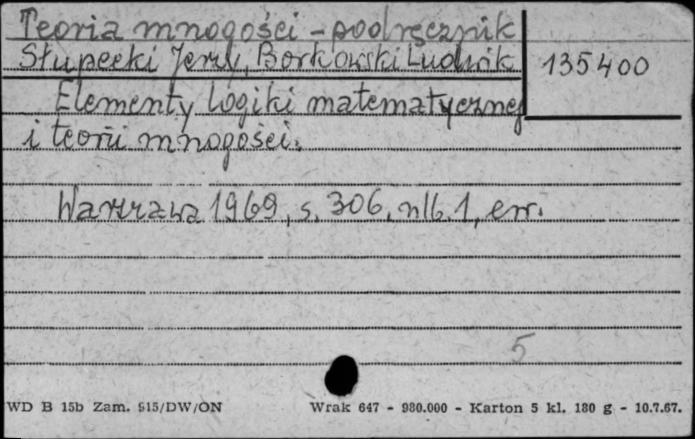 Teoria mnogości - podręcznik
Słupecki Jerzy, Borkowski Ludwik
135400
Elementy logiki matematycznej
i teorii mnogości.
Warszawa 1969, s. 306, nlb. 1, err.
5
WD B 15b Zam. 915/DW/ON Wrak 647 - 980.000 - Karton 5 kl. 180 g - 10.7.67.